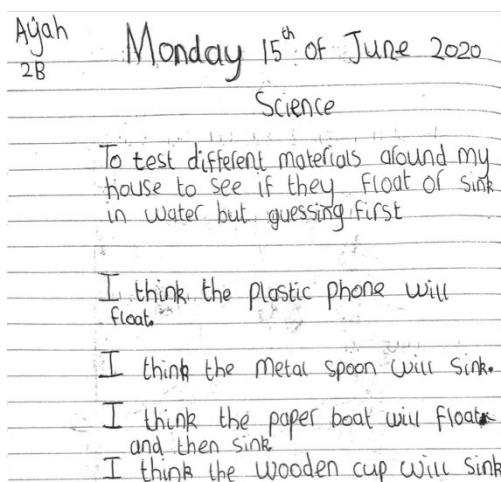 Ayah
2B
Monday 15th of June 2020
Science
To test different materials around my
house to see if they float or sink
in water but guessing first
I think the plastic phone will
float.
I think the metal spoon will sink.
I think the paper boat will float
and then sink
I think the wooden cup will sink